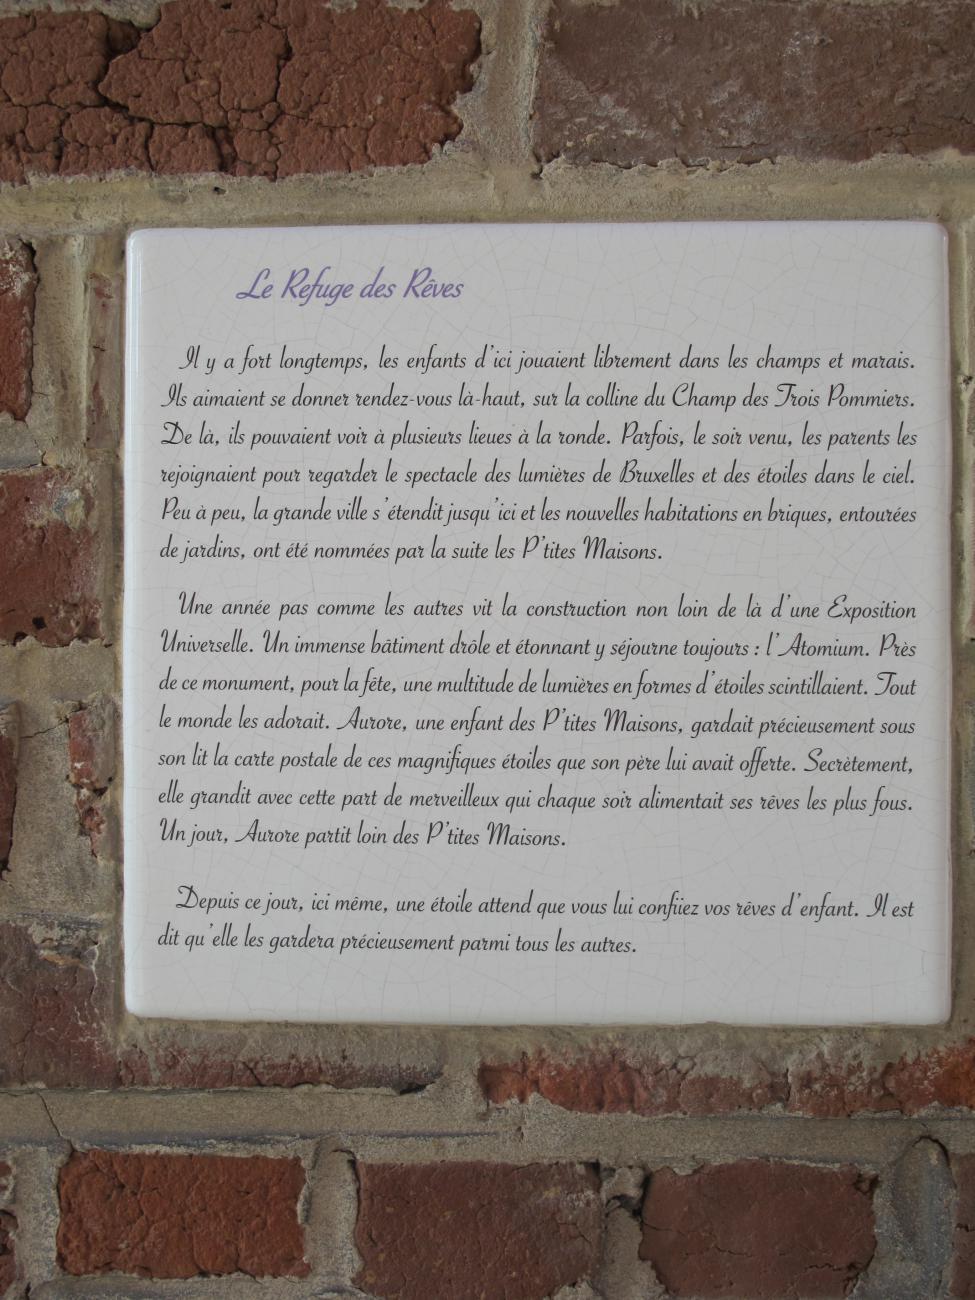 Le Refuge des Rêves
Il y a fort longtemps, les enfants d'ici jouaient librement dans les champs et marais.
Ils aimaient se donner rendez-vous là-haut, sur la colline du Champ des Trois Pommiers.
De là, ils pouvaient voir à plusieurs lieues à la ronde. Parfois, le soir venu, les parents les
rejoignaient pour regarder le spectacle des lumières de Bruxelles et des étoiles dans le ciel.
Peu à peu, la grande ville s'étendit jusqu'ici et les nouvelles habitations en briques, entourées
de jardins, ont été nommées par la suite les P'tites Maisons.
Une année pas comme les autres vit la construction non loin de là d'une Exposition
Universelle. Un immense bâtiment drôle et étonnant y séjourne toujours : l'Atomium. Près
de ce monument, pour la fête, une multitude de lumières en formes d'étoiles scintillaient. Tout
le monde les adorait. Aurore, une enfant des P'tites Maisons, gardait précieusement sous
son lit la carte postale de ces magnifiques étoiles que son père lui avait offerte. Secrètement,
elle grandit avec cette part de merveilleux qui chaque soir alimentait ses rêves les plus fous.
Un jour, Aurore partit loin des P'tites Maisons.
Depuis ce jour, ici même, une étoile attend que vous lui confiiez vos rêves d'enfant. Il est
dit qu'elle les gardera précieusement parmi tous les autres.